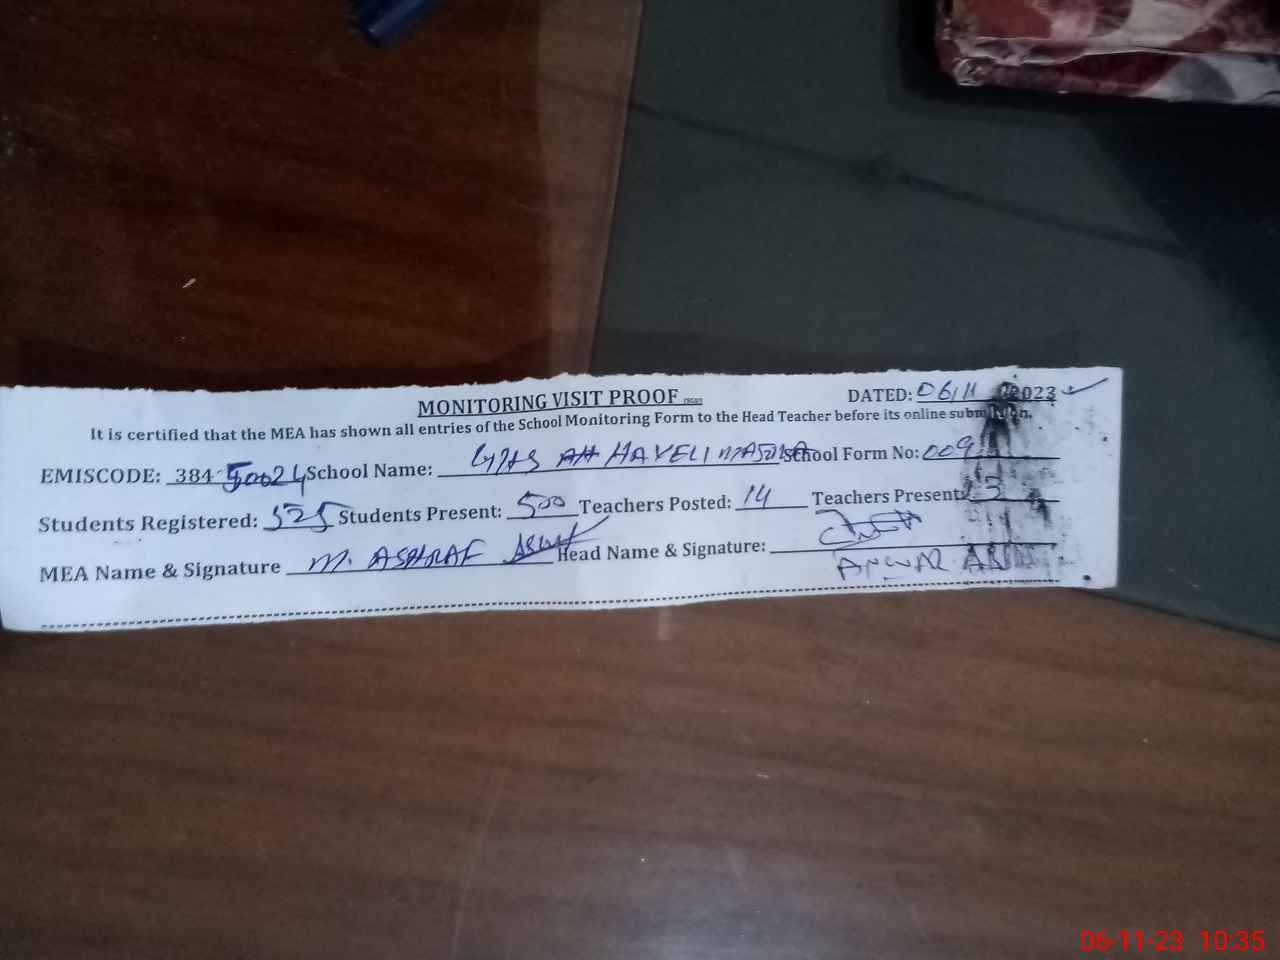 MONITORING VISIT PROOF
DATED: 06/11 2023
It is certified that the MEA has shown all entries of the School Monitoring Form to the Head Teacher before its online submission.
EMISCODE: 384 50024 School Name: GHS AH HAVELI School Form No: 009
Students Registered: 525 Students Present: 500 Teachers Posted: 14 Teachers Present:
MEA Name & Signature M. ASHRAF Head Name & Signature:
ANWAR
06-11-23 10:35